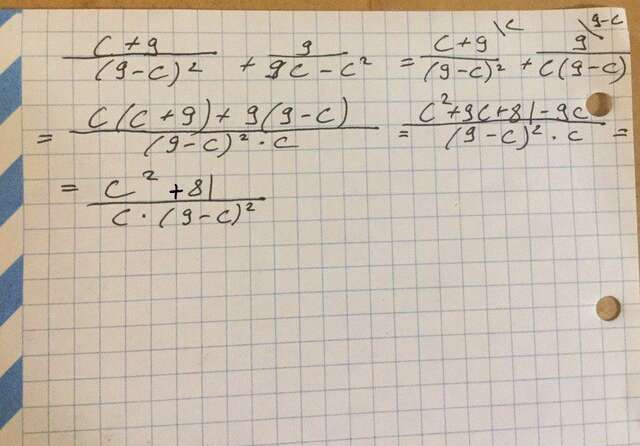 (c+9)/(9-c)² + 9/(9c-c²) = (c+9)\c/(9-c)² + 9\9-c/(c(9-c))
= (c(c+9)+9(9-c))/((9-c)²·c) = (c²+9c+81-9c)/((9-c)²·c) =
= (c²+81)/(c·(9-c)²)